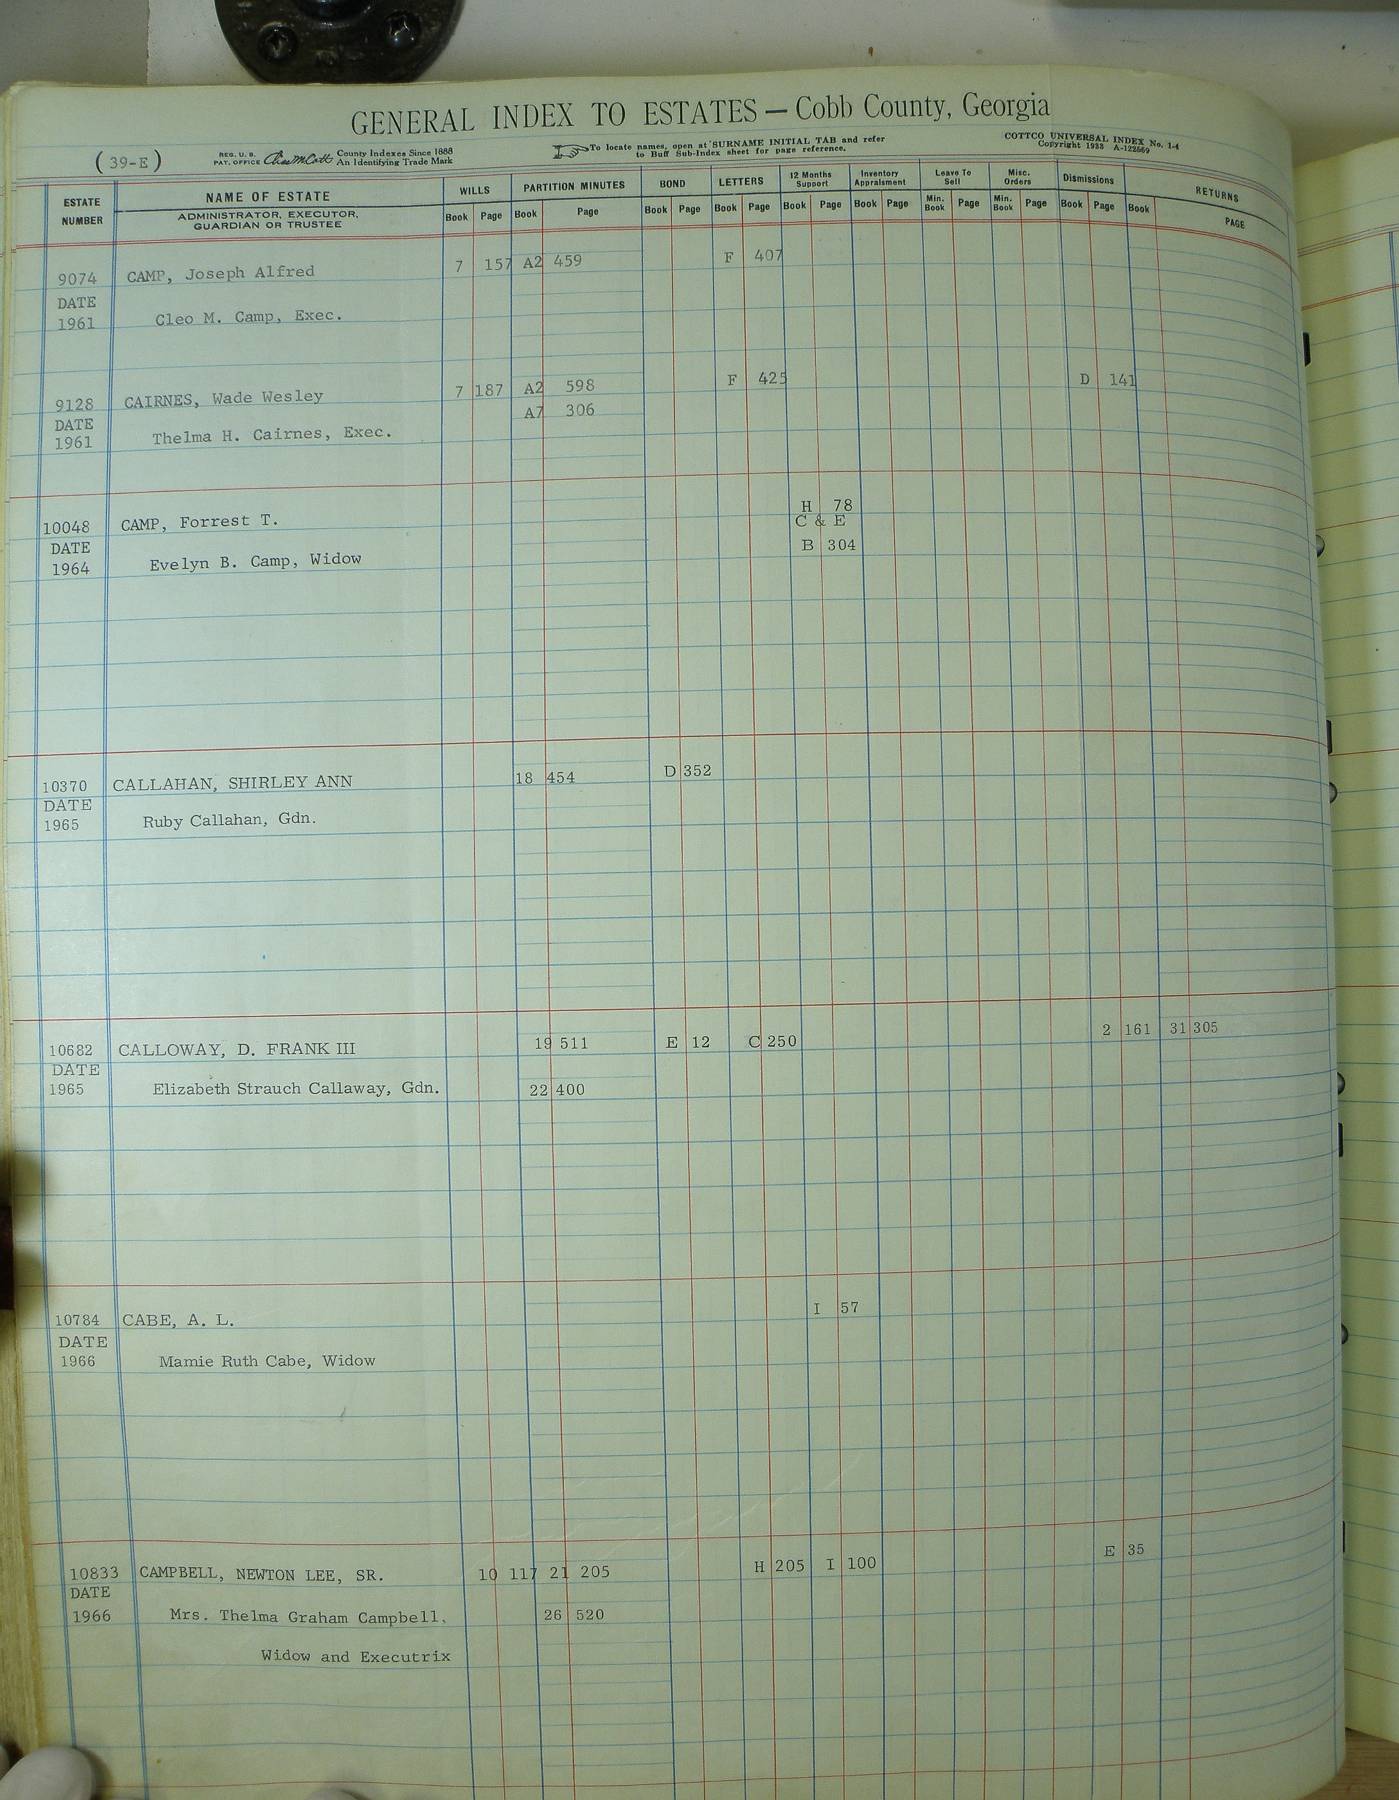 GENERAL INDEX TO ESTATES — Cobb County, Georgia
(39-E)
REG. U. S. PAT. OFFICE County Indexes Since 1888 An Identifying Trade Mark
To locate names, open at SURNAME INITIAL TAB and refer to Buff Sub-Index sheet for page reference.
COTTCO UNIVERSAL INDEX No. 1-4
Copyright 1933 A-122569
ESTATE NUMBER NAME OF ESTATE WILLS PARTITION MINUTES BOND LETTERS 12 Months Support Inventory Appraisment Leave To Sell Misc. Orders Dismissions RETURNS
ADMINISTRATOR, EXECUTOR, GUARDIAN OR TRUSTEE Book Page Book Page Book Page Book Page Book Page Book Page Min. Book Page Min. Book Page Book Page Book PAGE
9074 CAMP, Joseph Alfred 7 157 A2 459 F 407
DATE
1961 Cleo M. Camp, Exec.
9128 CAIRNES, Wade Wesley 7 187 A2 598 F 425 D 141
DATE A7 306
1961 Thelma H. Cairnes, Exec.
H 78
10048 CAMP, Forrest T. C & E
DATE B 304
1964 Evelyn B. Camp, Widow
10370 CALLAHAN, SHIRLEY ANN 18 454 D 352
DATE
1965 Ruby Callahan, Gdn.
10682 CALLOWAY, D. FRANK III 19 511 E 12 C 250 2 161 31 305
DATE
1965 Elizabeth Strauch Callaway, Gdn. 22 400
10784 CABE, A. L. I 57
DATE
1966 Mamie Ruth Cabe, Widow
10833 CAMPBELL, NEWTON LEE, SR. 10 117 21 205 H 205 I 100 E 35
DATE
1966 Mrs. Thelma Graham Campbell, 26 520
Widow and Executrix